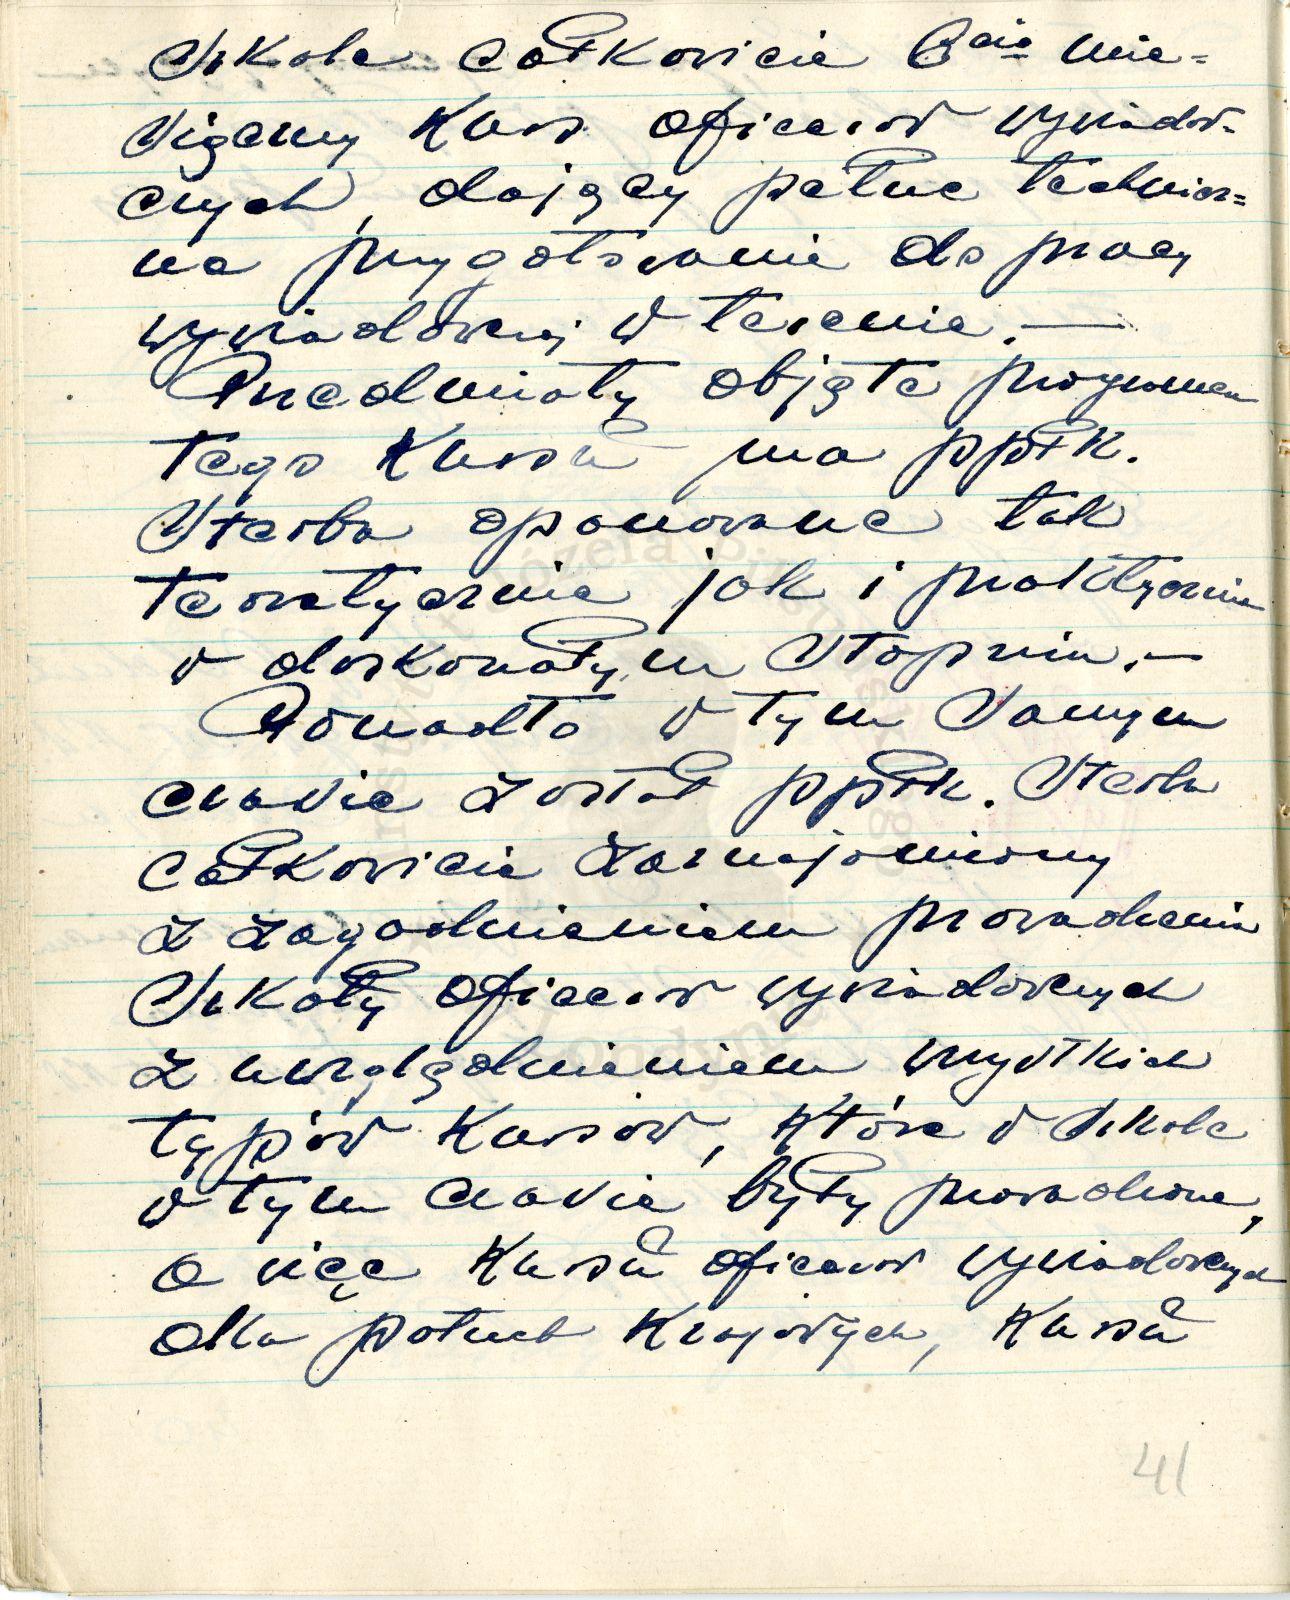 Szkole całkowicie 6cio mie=
sięczny Kurs oficerów wywiadow=
czych, dający pełne technicz=
ne przygotowanie do pracy
wywiadowczej w terenie. —
Przedmioty objęte programem
tego Kursu ma ppłk.
Sterba opanowane tak
teoretycznie jak i praktycznie
w doskonałym stopniu. —
Ponadto w tym samym
czasie został ppłk. Sterba
całkowicie zaznajomiony
z zagadnieniem prowadzenia
Szkoły oficerów wywiadowczych
z uwzględnieniem wszystkich
typów Kursów, które w Szkole
w tym czasie były prowadzone,
a więc Kursu oficerów wywiadowczych
dla potrzeb Krajowych, Kursu
41
Instytut Józefa Piłsudskiego
Londyn